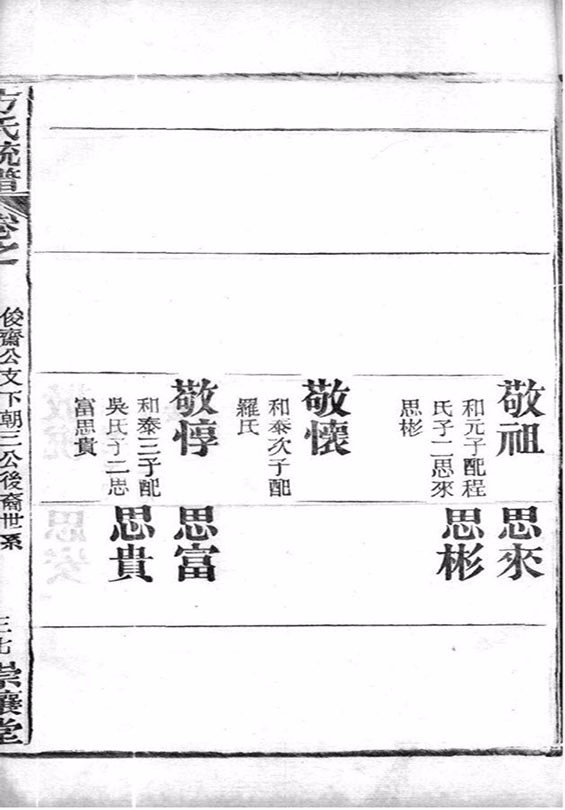 敬祖
和元子配程
氏子二思來
思彬
敬懷
和泰次子配
羅氏
敬惇
和泰三子配
吳氏子二思
富思貴
思來
思彬
思富
思貴
方氏統譜
卷之
俊齋公支下朝三公後裔世系
三七